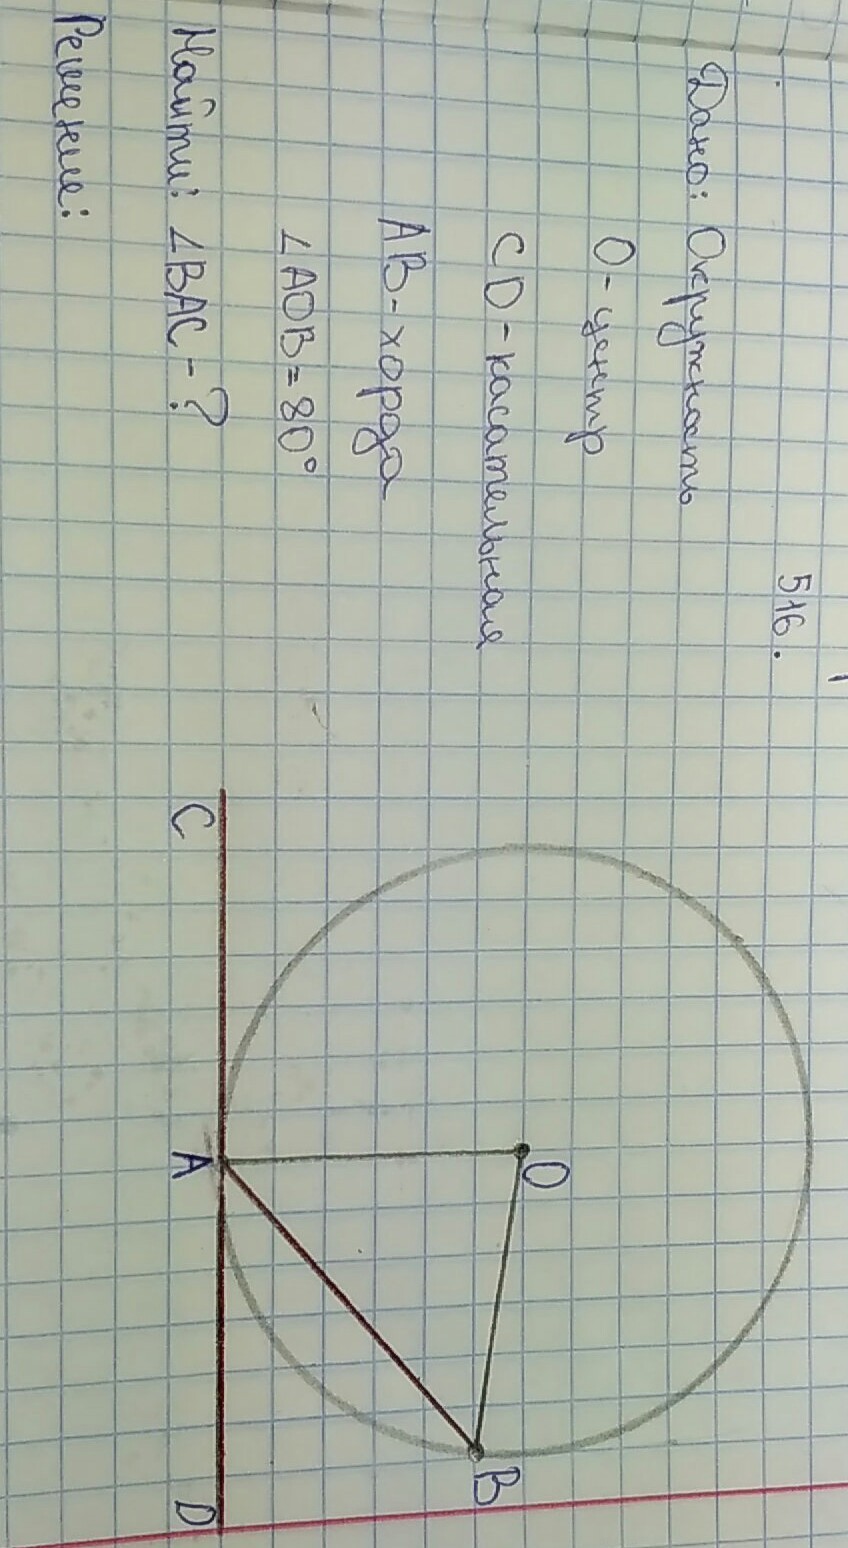 516.
Дано: Окружность
O - центр
CD - касательная
AB - хорда
∠AOB = 80°
Найти: ∠BAC - ?
Решение:
O
B
C
A
D